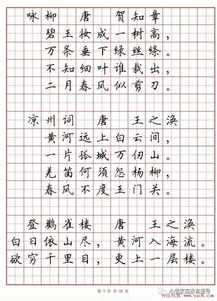 咏柳 唐 贺知章
碧玉妆成一树高，
万条垂下绿丝绦。
不知细叶谁裁出，
二月春风似剪刀。
凉州词 唐 王之涣
黄河远上白云间，
一片孤城万仞山。
羌笛何须怨杨柳，
春风不度玉门关。
登鹳雀楼 唐 王之涣
白日依山尽，黄河入海流。
欲穷千里目，更上一层楼。